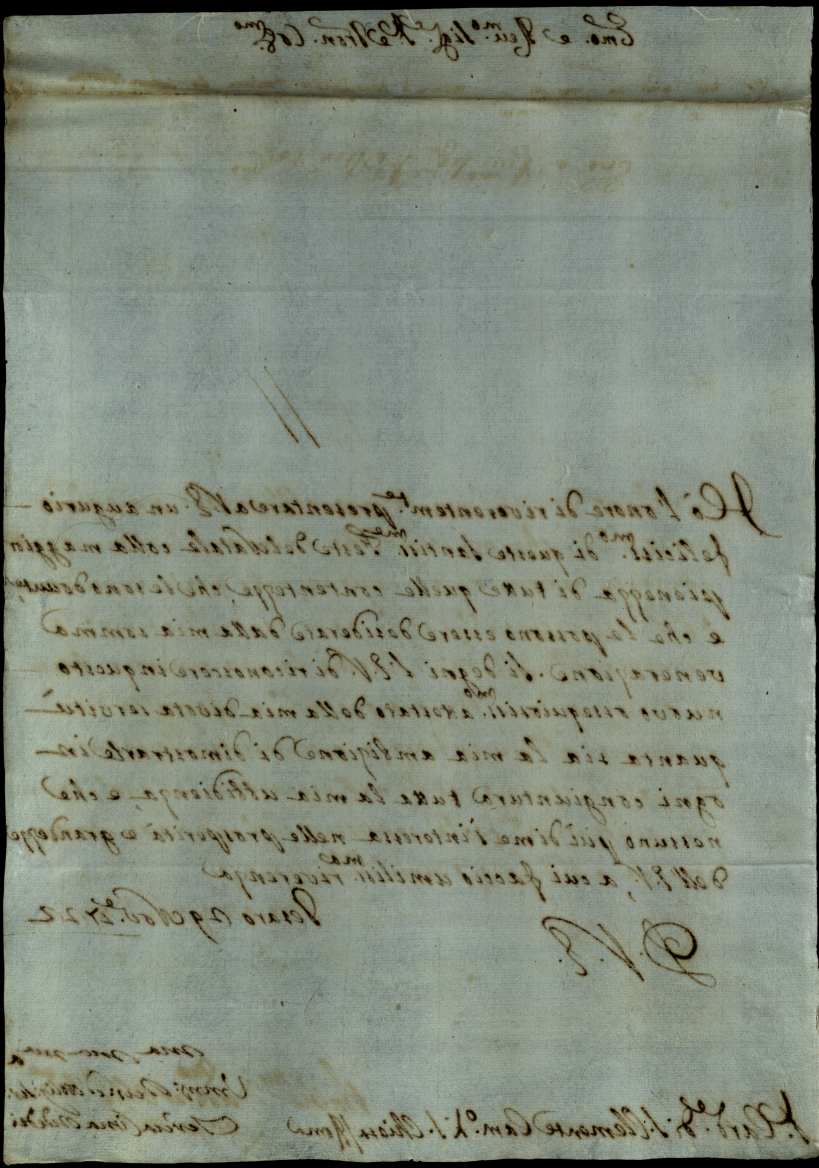 Emo. e Reu.mo Sig.re P.re e Pron. Col.mo
Hò l'onore di riverentem.te presentare a V. E. un augurio
feliciss.mo di queste santiss.me Feste del Natale colla maggior
pienezza di tutte quelle contentezze, che le sono dovute,
e che le possono essere desiderate dalla mia somma
venerazione. Si degni l'E. V. di riconoscere in questo
nuovo ossequiosiss.mo attestato della mia divota servitù
quanta sia la mia ambizione di dimostrarle in
ogni congiuntura tutta la mia ubbidienza, e che
nessuno più di me s'interessa nelle prosperità e grandezze
dell'E. V., a cui faccio umiliss.ma riverenza
Pesaro 29 Nov.re 1722
D. V. E.
S.r Card. di S. Clemente Cam.o di S. Chiesa Roma